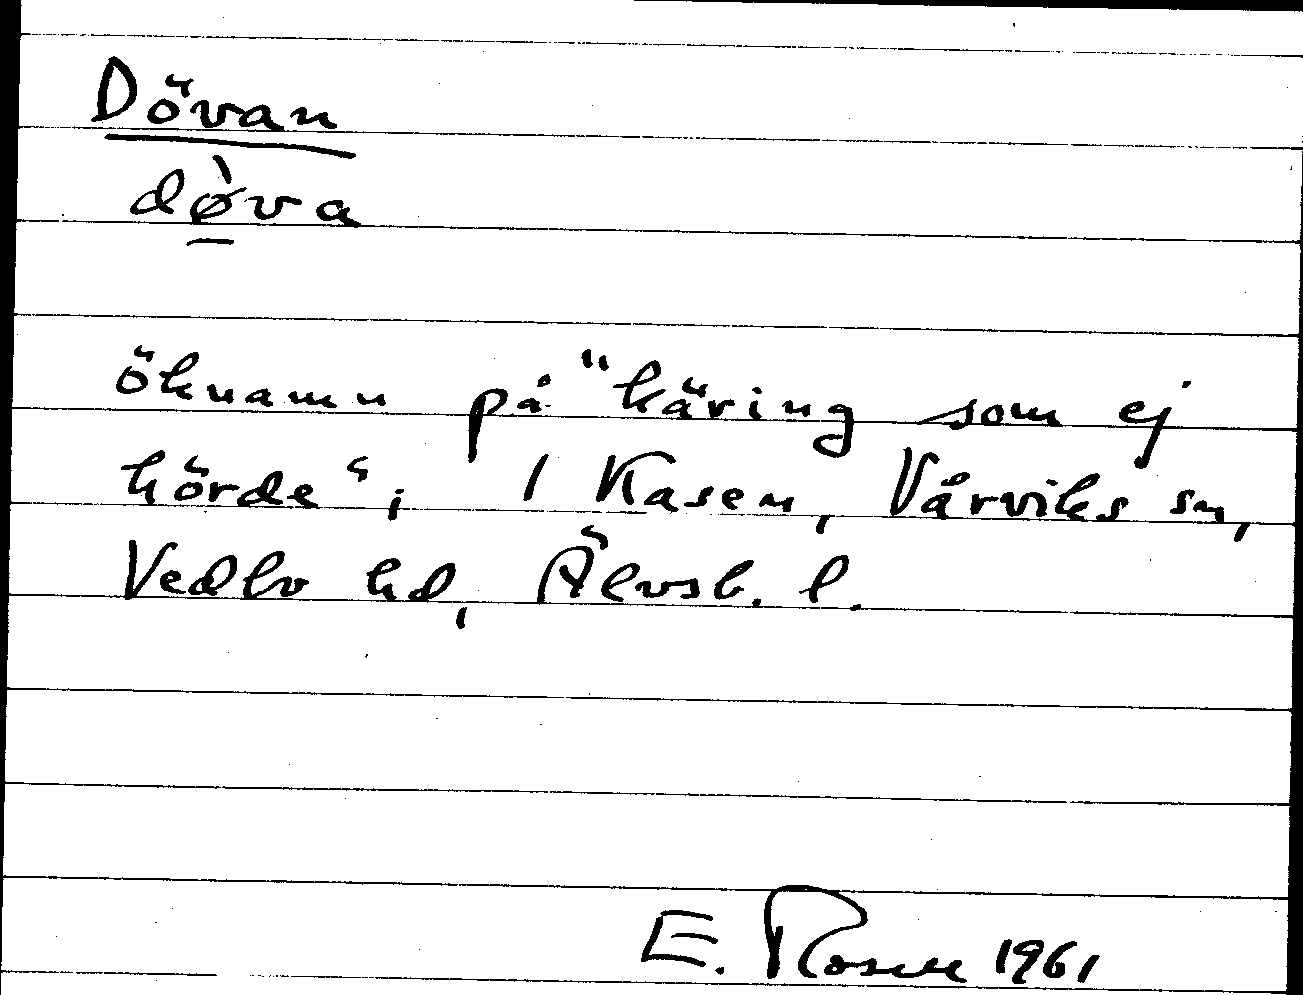 Dövan
dø̀va
öknamn på "käring som ej
hörde"; 1 Kasen, Vårviks sn,
Vedbo hd, Älvsb. l.
E. Rosell 1961